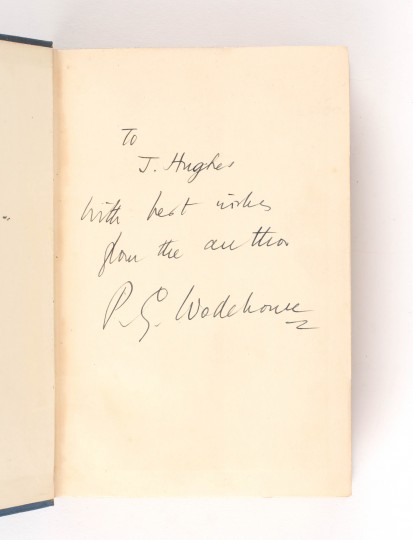 To
J. Hughes
With best wishes
from the author
P. G. Wodehouse